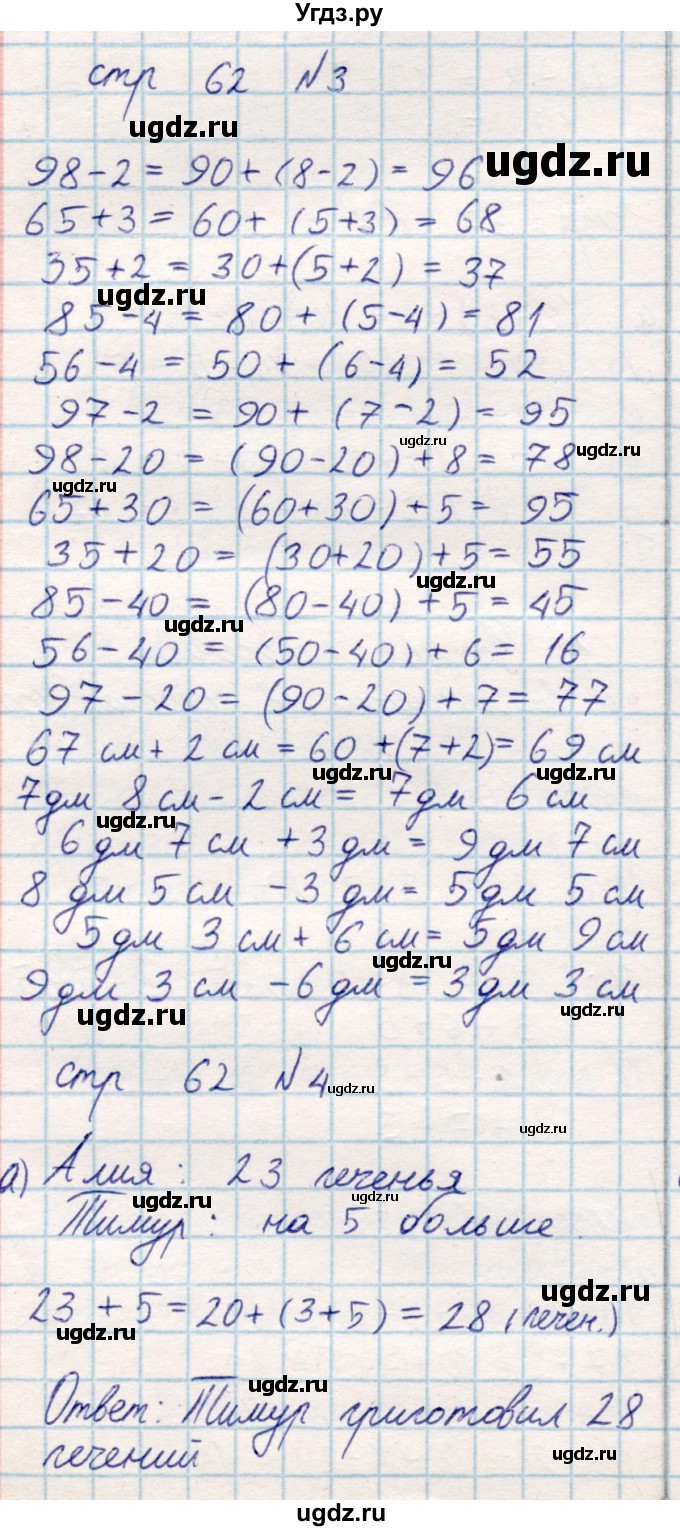 Угдз.ру
стр 62 №3
ugdz.ru
ugdz.ru
98-2 = 90+(8-2) = 96
65+3 = 60+ (5+3) = 68
35+2 = 30+(5+2) = 37
ugdz.ru
85-4 = 80 + (5-4) = 81
56-4 = 50 + (6-4) = 52
97-2 = 90+ (7-2) = 95
ugdz.ru
ugdz.ru
98-20 = (90-20)+8 = 78
ugdz.ru
65+30 = (60+30)+5 = 95
35+20 = (30+20)+5 = 55
ugdz.ru
85-40 = (80-40)+5 = 45
ugdz.ru
56-40 = (50-40)+6 = 16
97-20 = (90-20)+7 = 77
67 см + 2 см = 60+(7+2)= 69 см
ugdz.ru
ugdz.ru
7дм 8 см - 2 см = 7дм 6 см
ugdz.ru
6 дм 7 см + 3 дм = 9 дм 7 см
8 дм 5 см - 3 дм = 5 дм 5 см
5 дм 3 см + 6 см = 5 дм 9 см
ugdz.ru
9 дм 3 см - 6 дм = 3 дм 3 см
ugdz.ru
ugdz.ru
стр 62 №4
ugdz.ru
ugdz.ru
а) Алия: 23 печенья
ugdz.ru
ugdz.ru
Тимур: на 5 больше
ugdz.ru
23 + 5 = 20+(3+5) = 28 (печен.)
ugdz.ru
ugdz.ru
Ответ: Тимур приготовил 28
печений
ugdz.ru
ugdz.ru